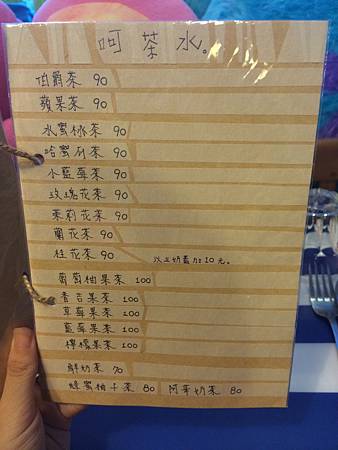 呵茶水。
伯爵茶 90
蘋果茶 90
水蜜桃茶 90
哈蜜瓜茶 90
小藍莓茶 90
玫瑰花茶 90
茉莉花茶 90
蘭花茶 90
桂花茶 90 以上奶蓋加10元。
葡萄柚果茶 100
青吉果茶 100
草莓果茶 100
藍莓果茶 100
檸檬果茶 100
鮮奶茶 70
蜂蜜柚子茶 80 阿華奶茶 80